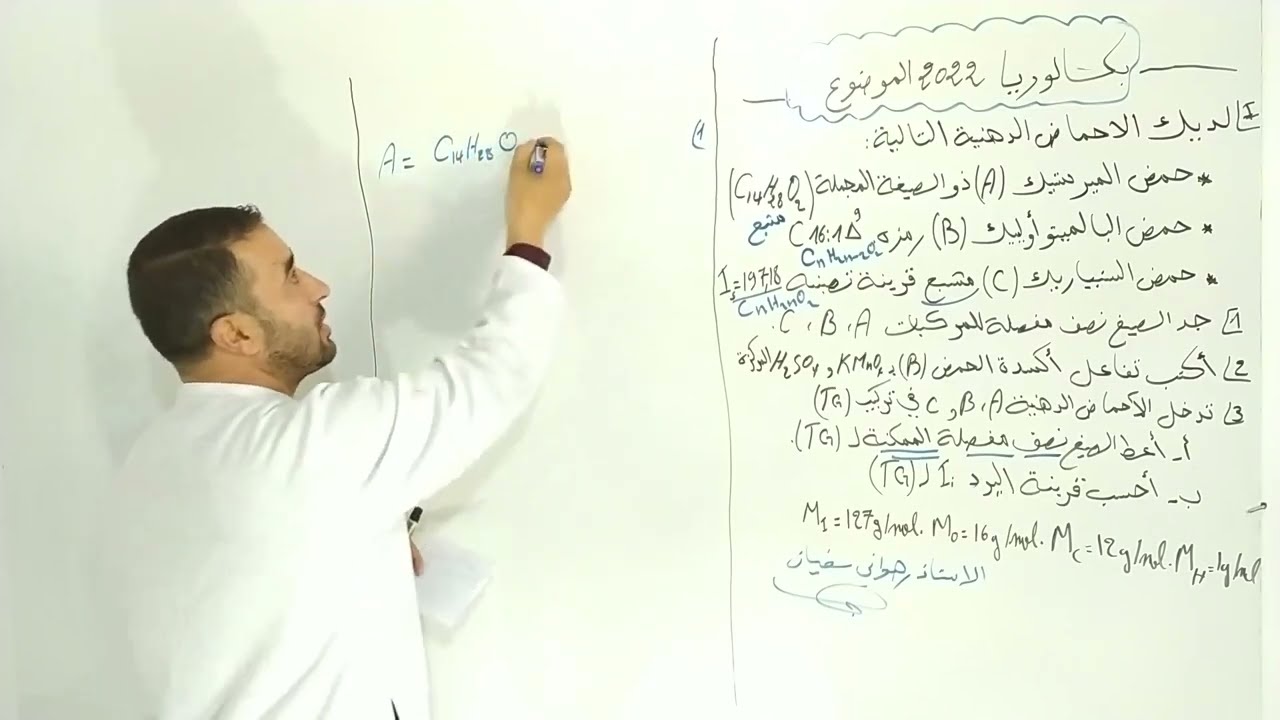 بكالوريا 2022 الموضوع
I/ لديك الاحماض الدهنية التالية:
* حمض الميرستيك (A) ذو الصيغة المجملة (C14H28O2)
مشبع
* حمض البالميتوأوليك (B) رمزه C16:1Δ9
CnH2n-2O2
* حمض الستياريك (C) مشبع قرينة تصبنه Is=197,18
CnH2nO2
1/ جد الصيغ نصف مفصلة للمركبات A، B، C.
2/ أكتب تفاعل أكسدة الحمض (B) بـ KMnO4 و H2SO4 المركزة
3/ تدخل الأحماض الدهنية A، B و C في تركيب (TG)
أ- أعط الصيغ نصف مفصلة الممكنة لـ (TG).
ب- أحسب قرينة اليود Ii لـ (TG)
MI=127g/mol. MO=16g/mol. MC=12g/mol. MH=1g/mol
الاستاذ رهواني سفيان
1)
A= C14H28O